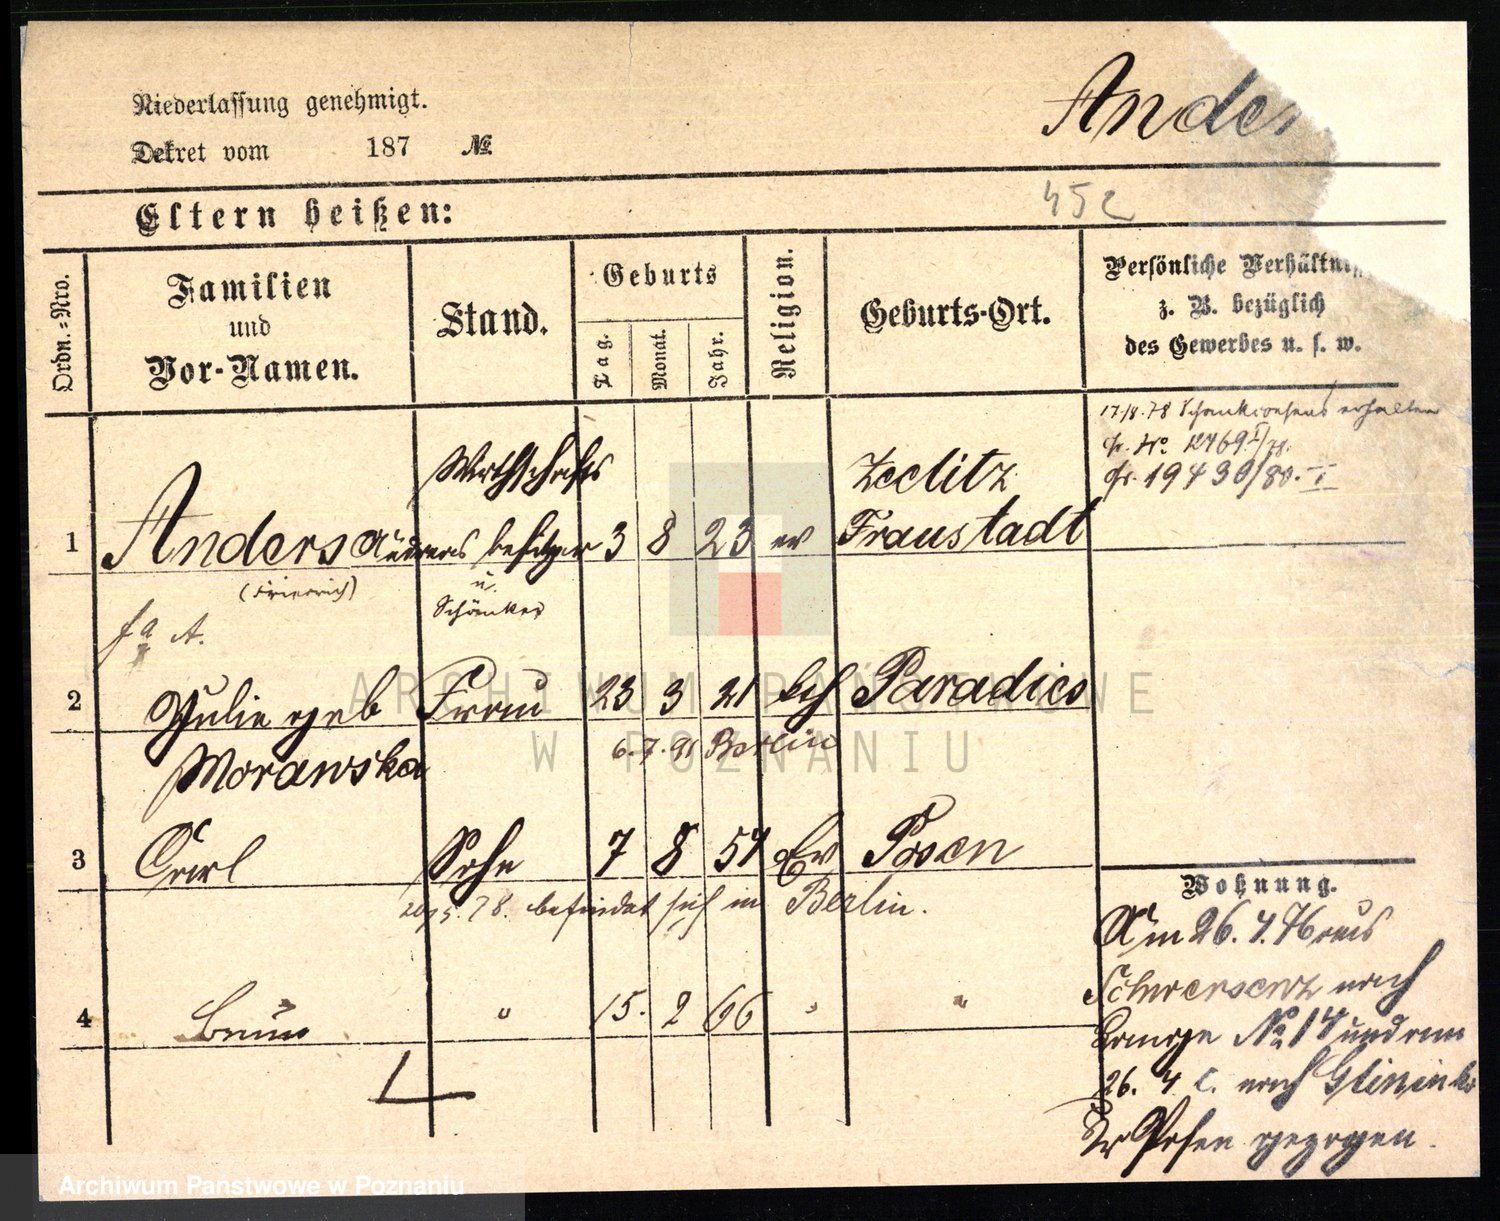 Niederlassung genehmigt.
Dekret vom 187 №
Ander
452
Eltern heißen:
Ordn.-Nro.
Familien
und
Vor-Namen.
Stand.
Geburts
Tag.
Monat.
Jahr.
Religion.
Geburts-Ort.
Persönliche Verhältnis
z. B. bezüglich
des Gewerbes u. s. w.
17/8.78 Schankconsens erhalten
cfr. No. 12769 I/78.
cfr. 19430/80. I
Wirthschafts
Zedlitz
1 Anders Andreas besitzer 3 8 23 ev Fraustadt
(Friedrich)
u.
Schänker
A.
2 Julie geb Frau 23 3 21 kth Paradies
Morawska
6.7.91 Berlin
3 Carl Sohn 7 8 57 Ev Posen
5.78. befindet sich in Berlin.
4 Bruno " 15. 2 66 " "
Wohnung.
Am 26. 4. 76 aus
Schwersenz nach
No 17 und am
26. 4 c. nach Glinienko
Kr Posen gezogen.
ARCHIWUM PAŃSTWOWE
W POZNANIU
Archiwum Państwowe w Poznaniu